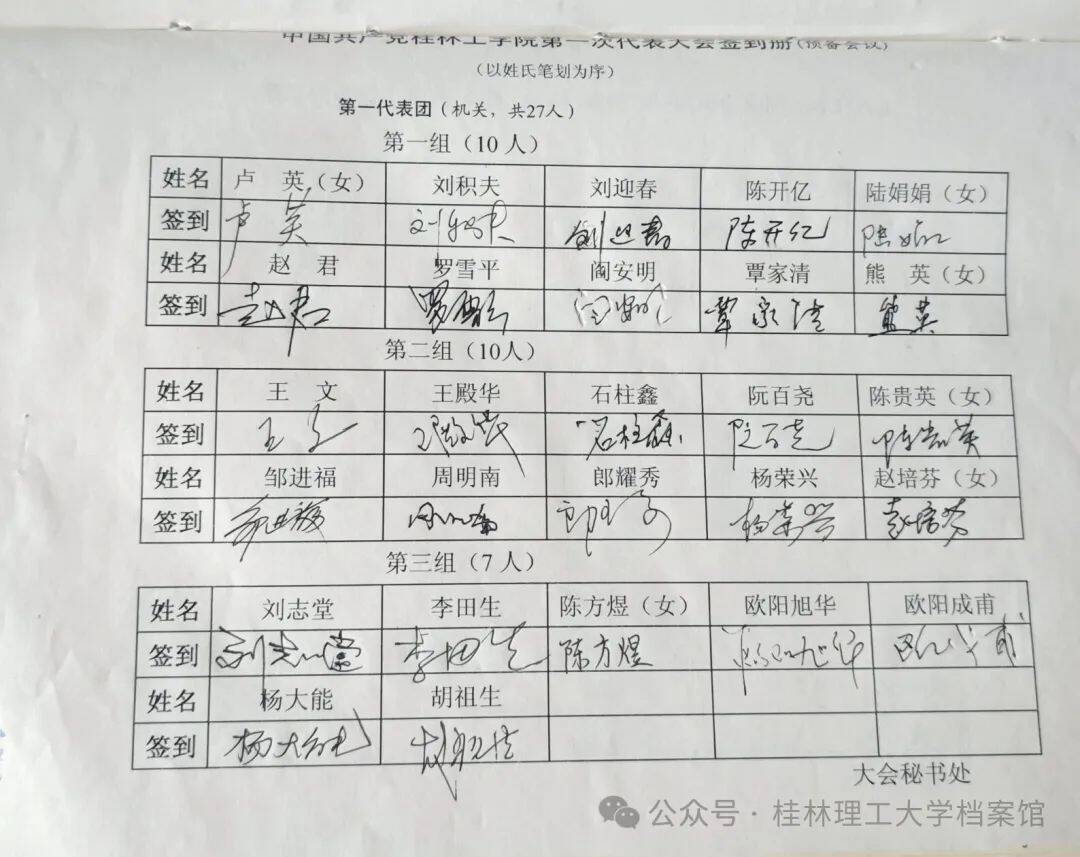 中国共产党桂林工学院第一次代表大会签到册(预备会议)
（以姓氏笔划为序）
第一代表团（机关，共27人）
第一组（10人）
姓名 卢 英（女） 刘积夫 刘迎春 陈开亿 陆娟娟（女）
签到 卢英 刘积夫 刘迎春 陈开亿 陆娟娟
姓名 赵 君 罗雪平 阎安明 覃家清 熊 英（女）
签到 赵君 罗雪平 闫安明 覃家清 熊英
第二组（10人）
姓名 王 文 王殿华 石柱鑫 阮百尧 陈贵英（女）
签到 王文 王殿华 石柱鑫 阮百尧 陈贵英
姓名 邹进福 周明南 郎耀秀 杨荣兴 赵培芬（女）
签到 邹进福 周明南 郎耀秀 杨荣兴 赵培芬
第三组（7人）
姓名 刘志堂 李田生 陈方煜（女） 欧阳旭华 欧阳成甫
签到 刘志堂 李田生 陈方煜 欧阳旭华 欧阳成甫
姓名 杨大能 胡祖生
签到 杨大能 胡祖生
大会秘书处
公众号·桂林理工大学档案馆